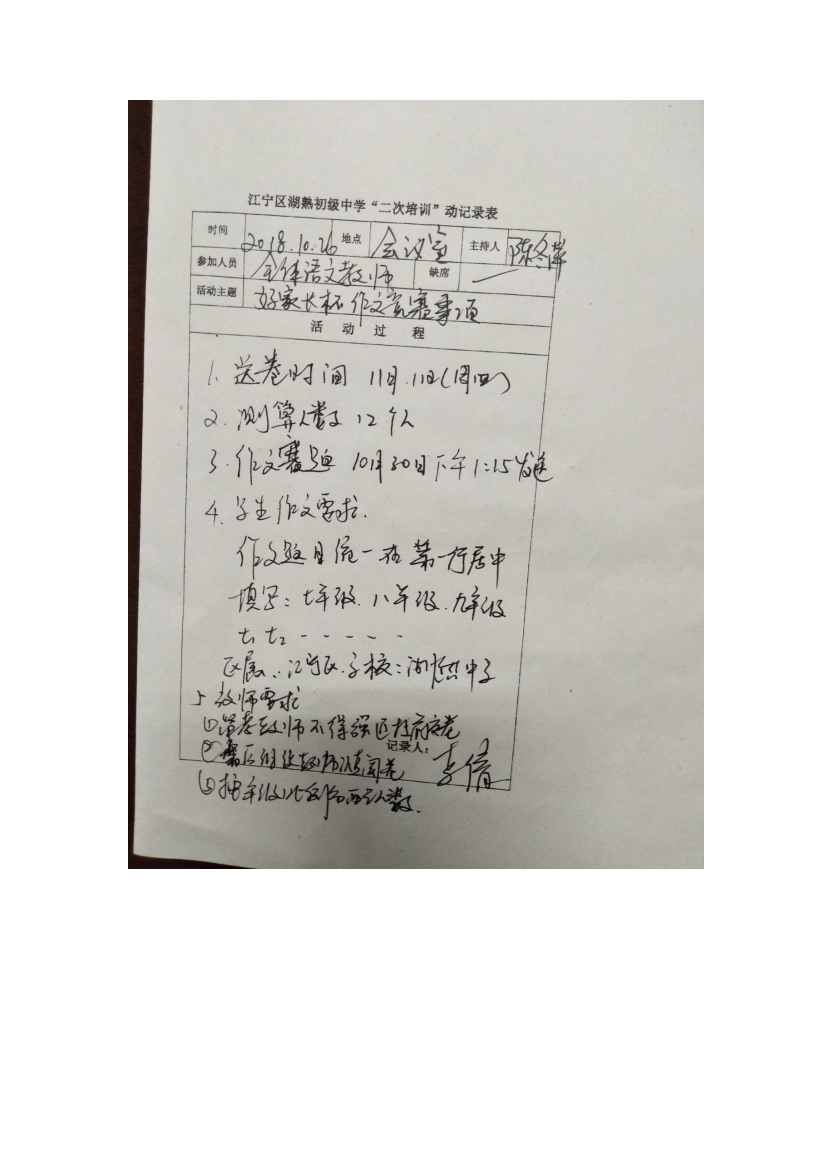 江宁区湖熟初级中学“二次培训”动记录表
时间 2018.10.26 地点 会议室 主持人 陈冬萍
参加人员 全体语文教师 缺席 —
活动主题 好家长杯作文竞赛事项
活 动 过 程
1. 送卷时间 11月.1日(周四)
2. 测算人数 12个人
3. 作文赛题 10月30日下午1:15发送
4. 学生作文要求.
作文题目统一在第一行居中
填写:七年级.八年级.九年级
七1 七2 - - - - -
区属:江宁区.学校:湖熟中学
5 教师要求
①监考教师不得误区
② 教师认真阅卷
③按年级比例分配人数.
记录人: 李倩